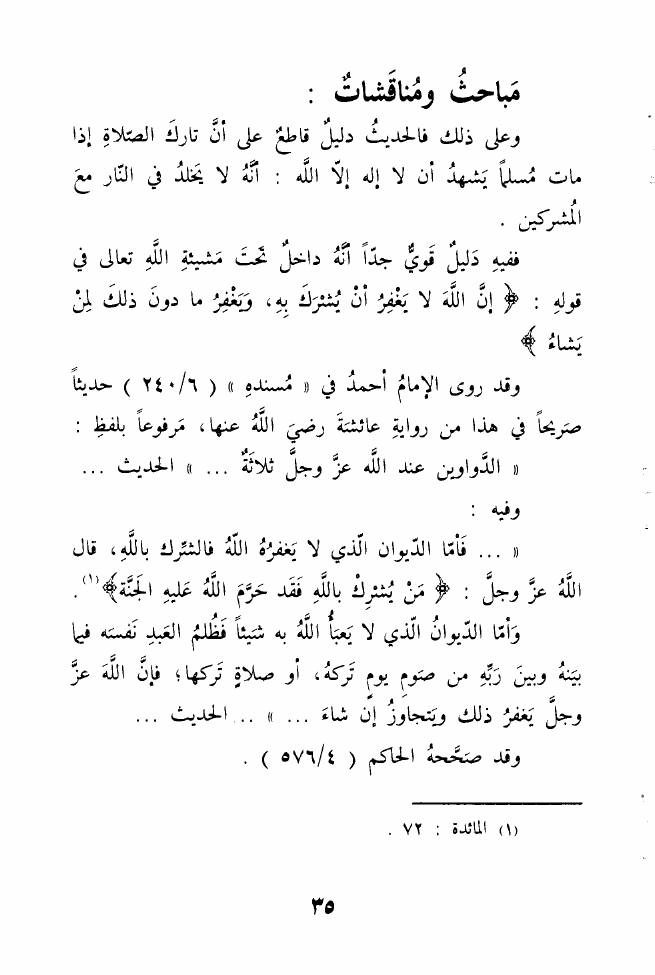 مَباحثُ ومُناقَشاتٌ :
وعلى ذلك فالحديثُ دليلٌ قاطعٌ على أنَّ تاركَ الصّلاةِ إذا
مات مُسلماً يَشهدُ أن لا إله إلاّ اللَّه : أنَّهُ لا يَخلدُ في النّار معَ
المُشركين .
ففيهِ دَليلٌ قَويٌّ جدّاً أنَّهُ داخلٌ تحتَ مَشيئةِ اللَّهِ تعالى في
قولهِ : ﴿ إنَّ اللَّهَ لا يَغْفِرُ أنْ يُشْرَكَ بِهِ، وَيَغْفِرُ ما دونَ ذلكَ لِمَنْ
يَشاءُ ﴾
وقد روى الإمامُ أحمدُ في « مُسندهِ » ( ٢٤٠/٦ ) حديثاً
صَريحاً في هذا من روايةِ عائشةَ رضيَ اللَّهُ عنها، مَرفوعاً بلفظِ :
« الدَّواوين عند اللَّه عزَّ وجلَّ ثلاثَةٌ ... » الحديث ...
وفيه :
« ... فَأمّا الدّيوان الّذي لا يَغفرُهُ اللَّهُ فالشِّرك باللَّهِ، قال
اللَّهُ عزَّ وجلَّ : ﴿ مَنْ يُشْرِكْ باللَّهِ فَقَد حَرَّمَ اللَّهُ عَليهِ الجَنَّة﴾(١).
وَأمّا الدّيوانُ الّذي لا يَعبَأُ اللَّهُ به شَيئاً فَظُلمُ العَبدِ نَفسَه فيما
بيَنهُ وبينَ رَبِّهِ من صَومِ يومٍ تَركهُ، أو صلاةٍ تَركها؛ فإنَّ اللَّهَ عزَّ
وجلَّ يَغفرُ ذلك ويَتجاوزُ إن شاءَ ... » .. الحديث ...
وقد صَحَّحهُ الحاكم ( ٥٧٦/٤ ) .
(١) المائدة : ٧٢ .
٣٥